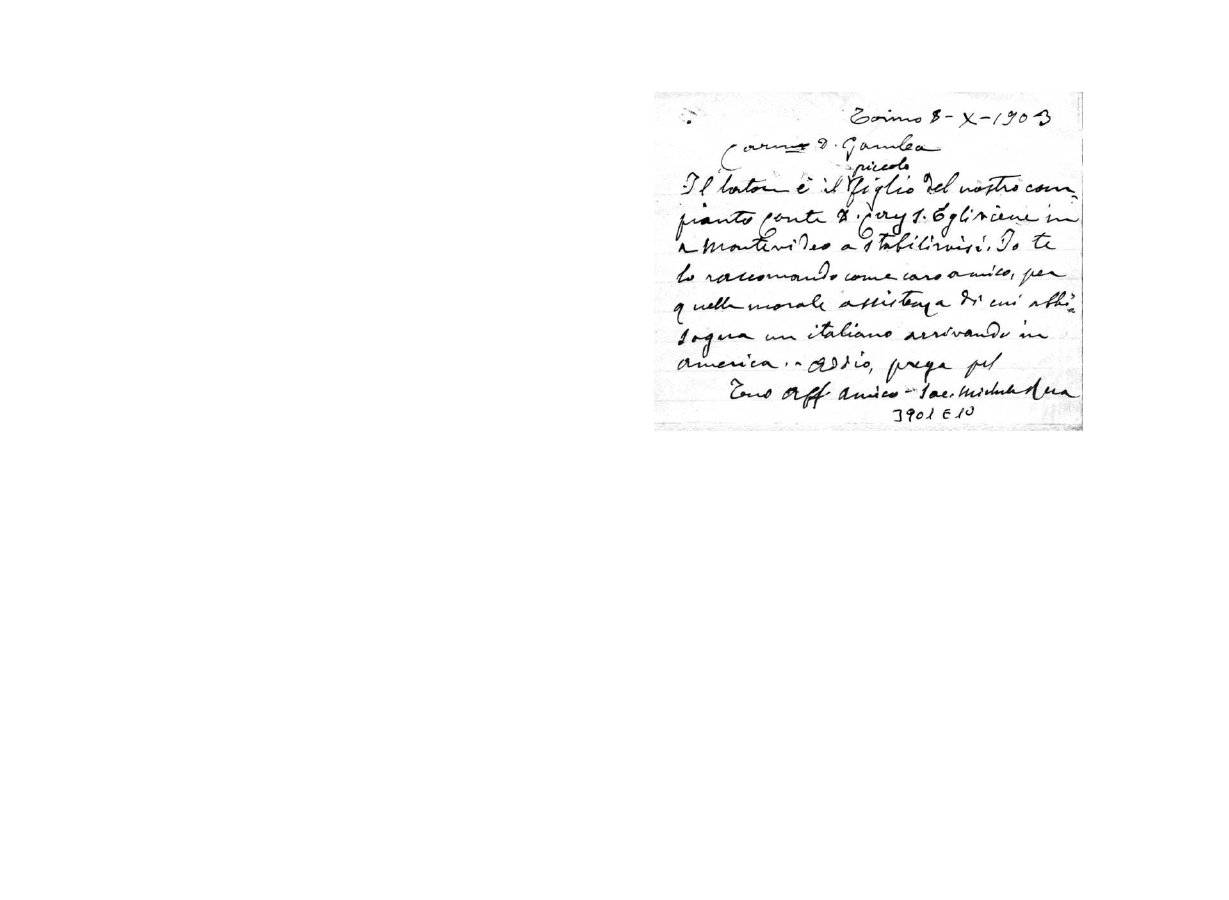 Torino 8-X-1903
Carmo D. Gamba
piccolo
Il lator è il figlio del nostro com-
pianto Conte D. Egli viene in
a Montevideo a stabilirvisi. Io te
lo raccomando come caro amico, per
quella morale assistenza di cui abbi-
sogna un italiano arrivando in
America. - Addio, prega pel
Tuo Aff Amico - Sac. Michele Rua
3901 E 10